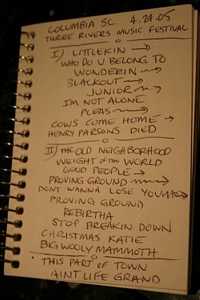 COLUMBIA SC 4.29.05
THREE RIVERS MUSIC FESTIVAL
I) LITTLE KIN →
WHO DO U BELONG TO
WONDERIN
BLACKOUT →
JUNIOR
IM NOT ALONE
PLEAS
COWS COME HOME →
HENRY PARSONS DIED
II) THE OLD NEIGHBORHOOD
WEIGHT OF THE WORLD
GOOD PEOPLE →
PROVING GROUND
DONT WANNA LOSE YOU →
PROVING GROUND
REBIRTHA
STOP BREAKIN DOWN
CHRISTMAS KATIE
BIG WOOLY MAMMOTH
THIS PART OF TOWN
AINT LIFE GRAND